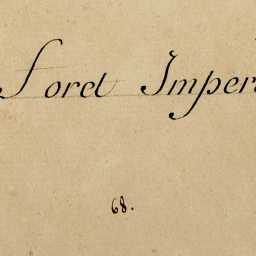 Foret Imper
68.